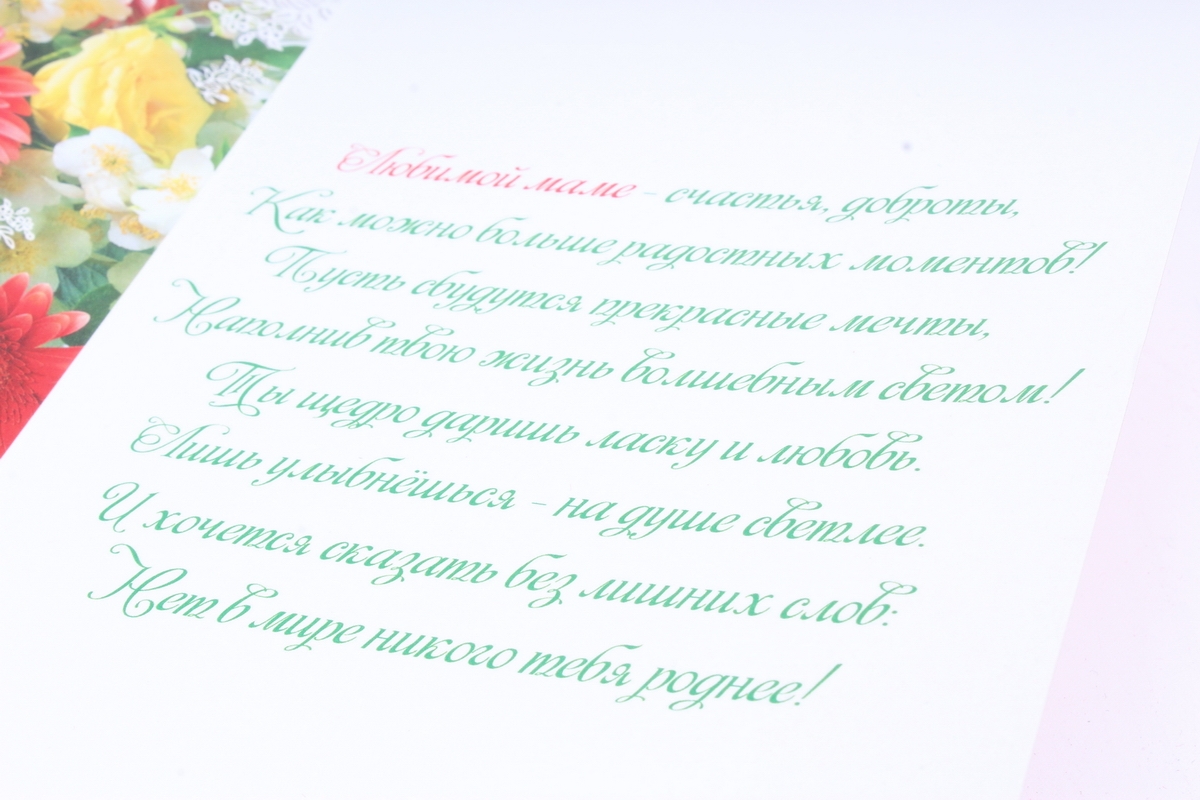 Любимой маме - счастья, доброты,
Как можно больше радостных моментов!
Пусть сбудутся прекрасные мечты,
Наполнив твою жизнь волшебным светом!
Ты щедро даришь ласку и любовь.
Лишь улыбнёшься - на душе светлее.
И хочется сказать без лишних слов:
Нет в мире никого тебя роднее!